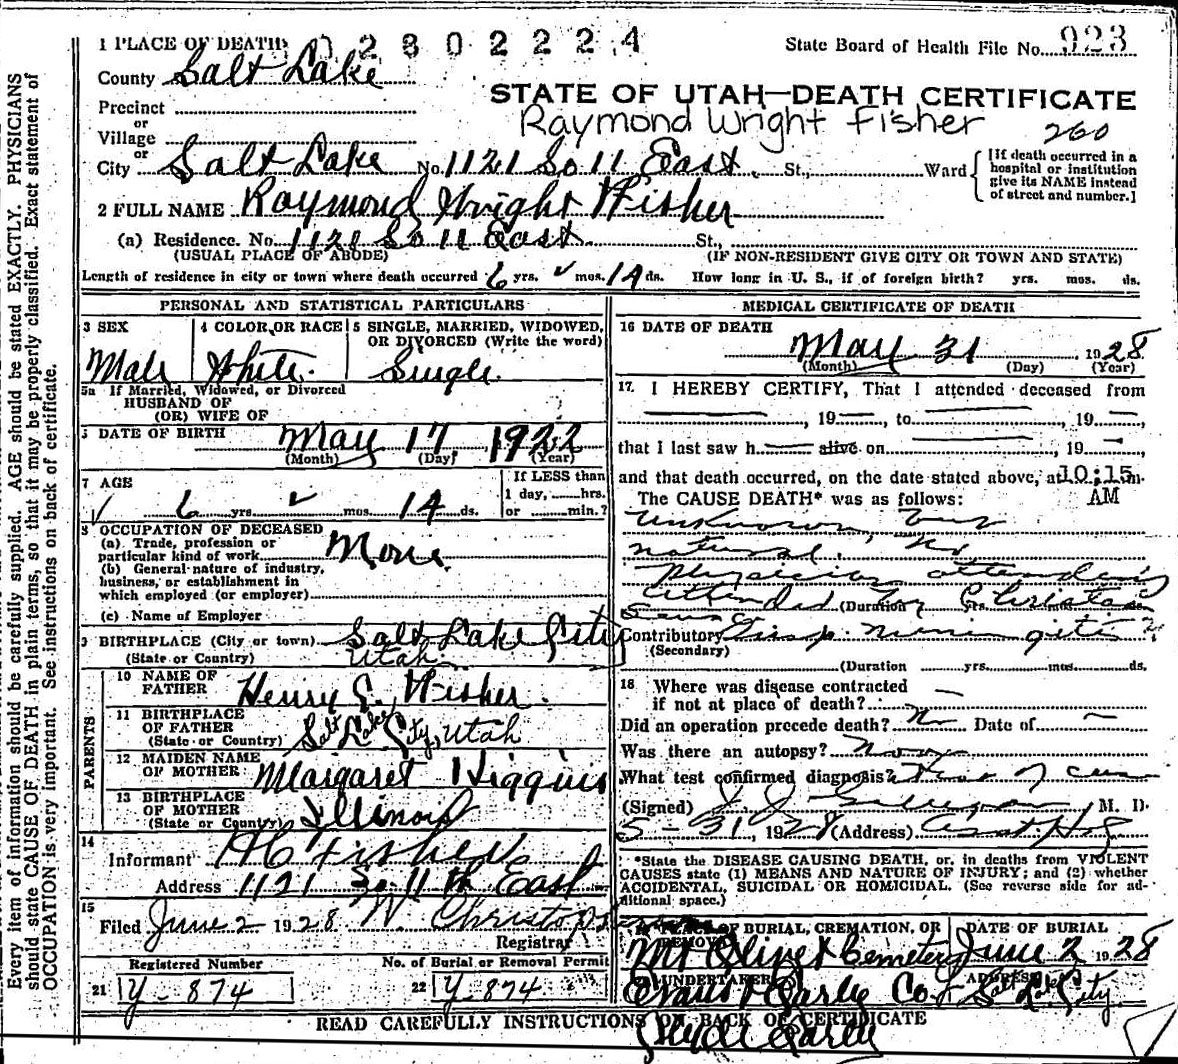 1 PLACE OF DEATH 2802224
State Board of Health File No. 923
County Salt Lake
STATE OF UTAH—DEATH CERTIFICATE
Precinct
Raymond Wright Fisher
or
Village
260
or
City Salt Lake No. 1121 So 11 East St., Ward
[If death occurred in a hospital or institution give its NAME instead of street and number.]
2 FULL NAME Raymond Wright Fisher
(a) Residence. No. 1121 So 11 East St.,
(USUAL PLACE OF ABODE) (IF NON-RESIDENT GIVE CITY OR TOWN AND STATE)
Length of residence in city or town where death occurred 6 yrs. mos. 14 ds. How long in U. S., if of foreign birth? yrs. mos. ds.
PERSONAL AND STATISTICAL PARTICULARS
3 SEX 4 COLOR OR RACE 5 SINGLE, MARRIED, WIDOWED,
OR DIVORCED (Write the word)
Male White. Single.
5a If Married, Widowed, or Divorced
HUSBAND OF
(OR) WIFE OF
DATE OF BIRTH May 17 1922
(Month) (Day) (Year)
7 AGE If LESS than
1 day, hrs.
6 yrs mos. 14 ds. or min.?
8 OCCUPATION OF DECEASED
(a) Trade, profession or
particular kind of work None.
(b) General nature of industry,
business, or establishment in
which employed (or employer)
(c) Name of Employer
9 BIRTHPLACE (City or town) Salt Lake City
(State or Country) Utah.
PARENTS
10 NAME OF
FATHER Henry C. Fisher.
11 BIRTHPLACE
OF FATHER
(State or Country) Salt Lake City, Utah
12 MAIDEN NAME
OF MOTHER Margaret Higgins
13 BIRTHPLACE
OF MOTHER
(State or Country) Illinois
14
Informant H C Fisher
Address 1121 So. 11th East
15
Filed June 2 1928
Registrar
Registered Number No. of Burial or Removal Permit
21 Y-874 22 Y-874
MEDICAL CERTIFICATE OF DEATH
16 DATE OF DEATH
May 31 1928
(Month) (Day) (Year)
17. I HEREBY CERTIFY, That I attended deceased from
, 19 , to , 19 ,
that I last saw h alive on , 19
and that death occurred, on the date stated above, at 10:15 m.
AM
The CAUSE DEATH* was as follows:
Unknown, but
natural. No
physician attending
attended by Christian
(Duration
Contributory
(Secondary)
(Duration yrs. mos. ds.
18 Where was disease contracted
if not at place of death?
Did an operation precede death? No Date of
Was there an autopsy?
What test confirmed diagnosis?
(Signed) M. D.
5-31, 1928 (Address)
*State the DISEASE CAUSING DEATH, or, in deaths from VIOLENT
CAUSES state (1) MEANS AND NATURE OF INJURY; and (2) whether
ACCIDENTAL, SUICIDAL OR HOMICIDAL. (See reverse side for ad-
ditional space.)
OF BURIAL, CREMATION, OR DATE OF BURIAL
Mt Olivet Cemetery June 2 1928
UNDERTAKER ADDRESS
Evans & Early Co. Salt Lake City
READ CAREFULLY INSTRUCTIONS ON BACK OF CERTIFICATE
Clyde Early
Every item of information should be carefully supplied. AGE should be stated EXACTLY. PHYSICIANS
should state CAUSE OF DEATH in plain terms, so that it may be properly classified. Exact statement of
OCCUPATION is very important. See instructions on back of certificate.